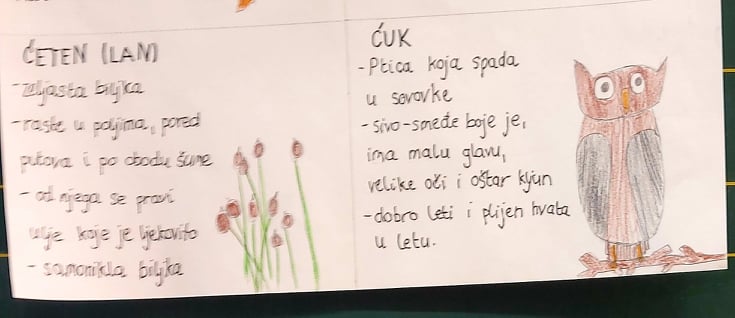 ĆETEN (LAN)
- zeljasta biljka
- raste u poljima, pored
putova i po obodu šume
- od njega se pravi
ulje koje je ljekovito
- samonikla biljka
ĆUK
- Ptica koja spada
u sovovke
- sivo-smeđe boje je,
ima malu glavu,
velike oči i oštar kljun
- dobro leti i plijen hvata
u letu.